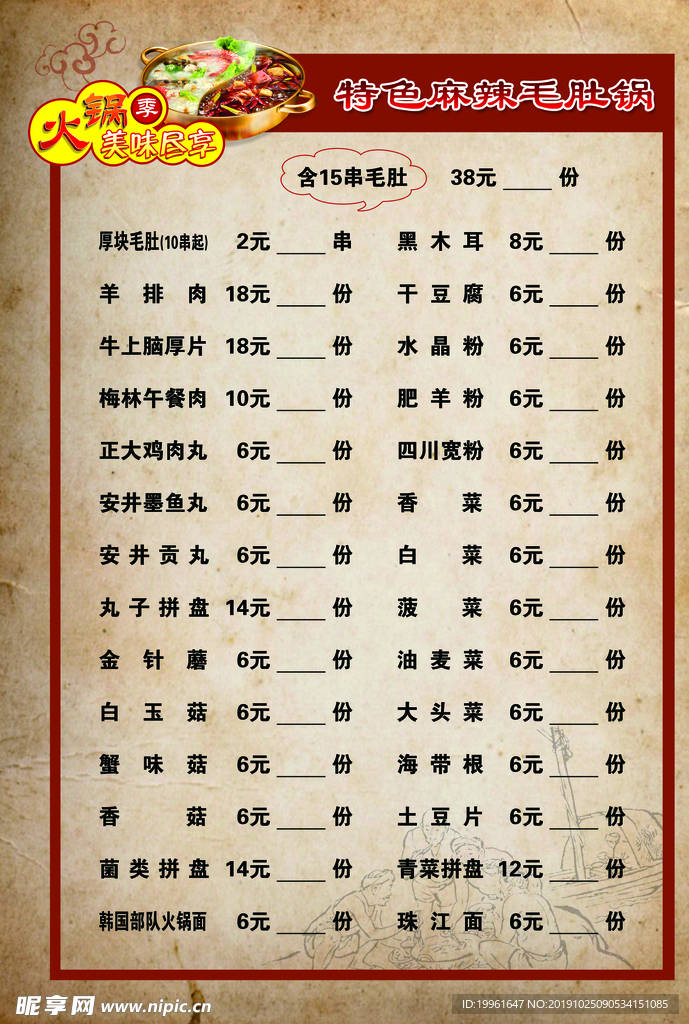 火锅季
美味尽享
特色麻辣毛肚锅
含15串毛肚 38元 _____ 份
厚块毛肚(10串起) 2元 _____ 串 黑木耳 8元 _____ 份
羊排肉 18元 _____ 份 干豆腐 6元 _____ 份
牛上脑厚片 18元 _____ 份 水晶粉 6元 _____ 份
梅林午餐肉 10元 _____ 份 肥羊粉 6元 _____ 份
正大鸡肉丸 6元 _____ 份 四川宽粉 6元 _____ 份
安井墨鱼丸 6元 _____ 份 香菜 6元 _____ 份
安井贡丸 6元 _____ 份 白菜 6元 _____ 份
丸子拼盘 14元 _____ 份 菠菜 6元 _____ 份
金针蘑 6元 _____ 份 油麦菜 6元 _____ 份
白玉菇 6元 _____ 份 大头菜 6元 _____ 份
蟹味菇 6元 _____ 份 海带根 6元 _____ 份
香菇 6元 _____ 份 土豆片 6元 _____ 份
菌类拼盘 14元 _____ 份 青菜拼盘 12元 _____ 份
韩国部队火锅面 6元 _____ 份 珠江面 6元 _____ 份
昵享网 www.nipic.cn
ID:19961647 NO:20191025090534151085